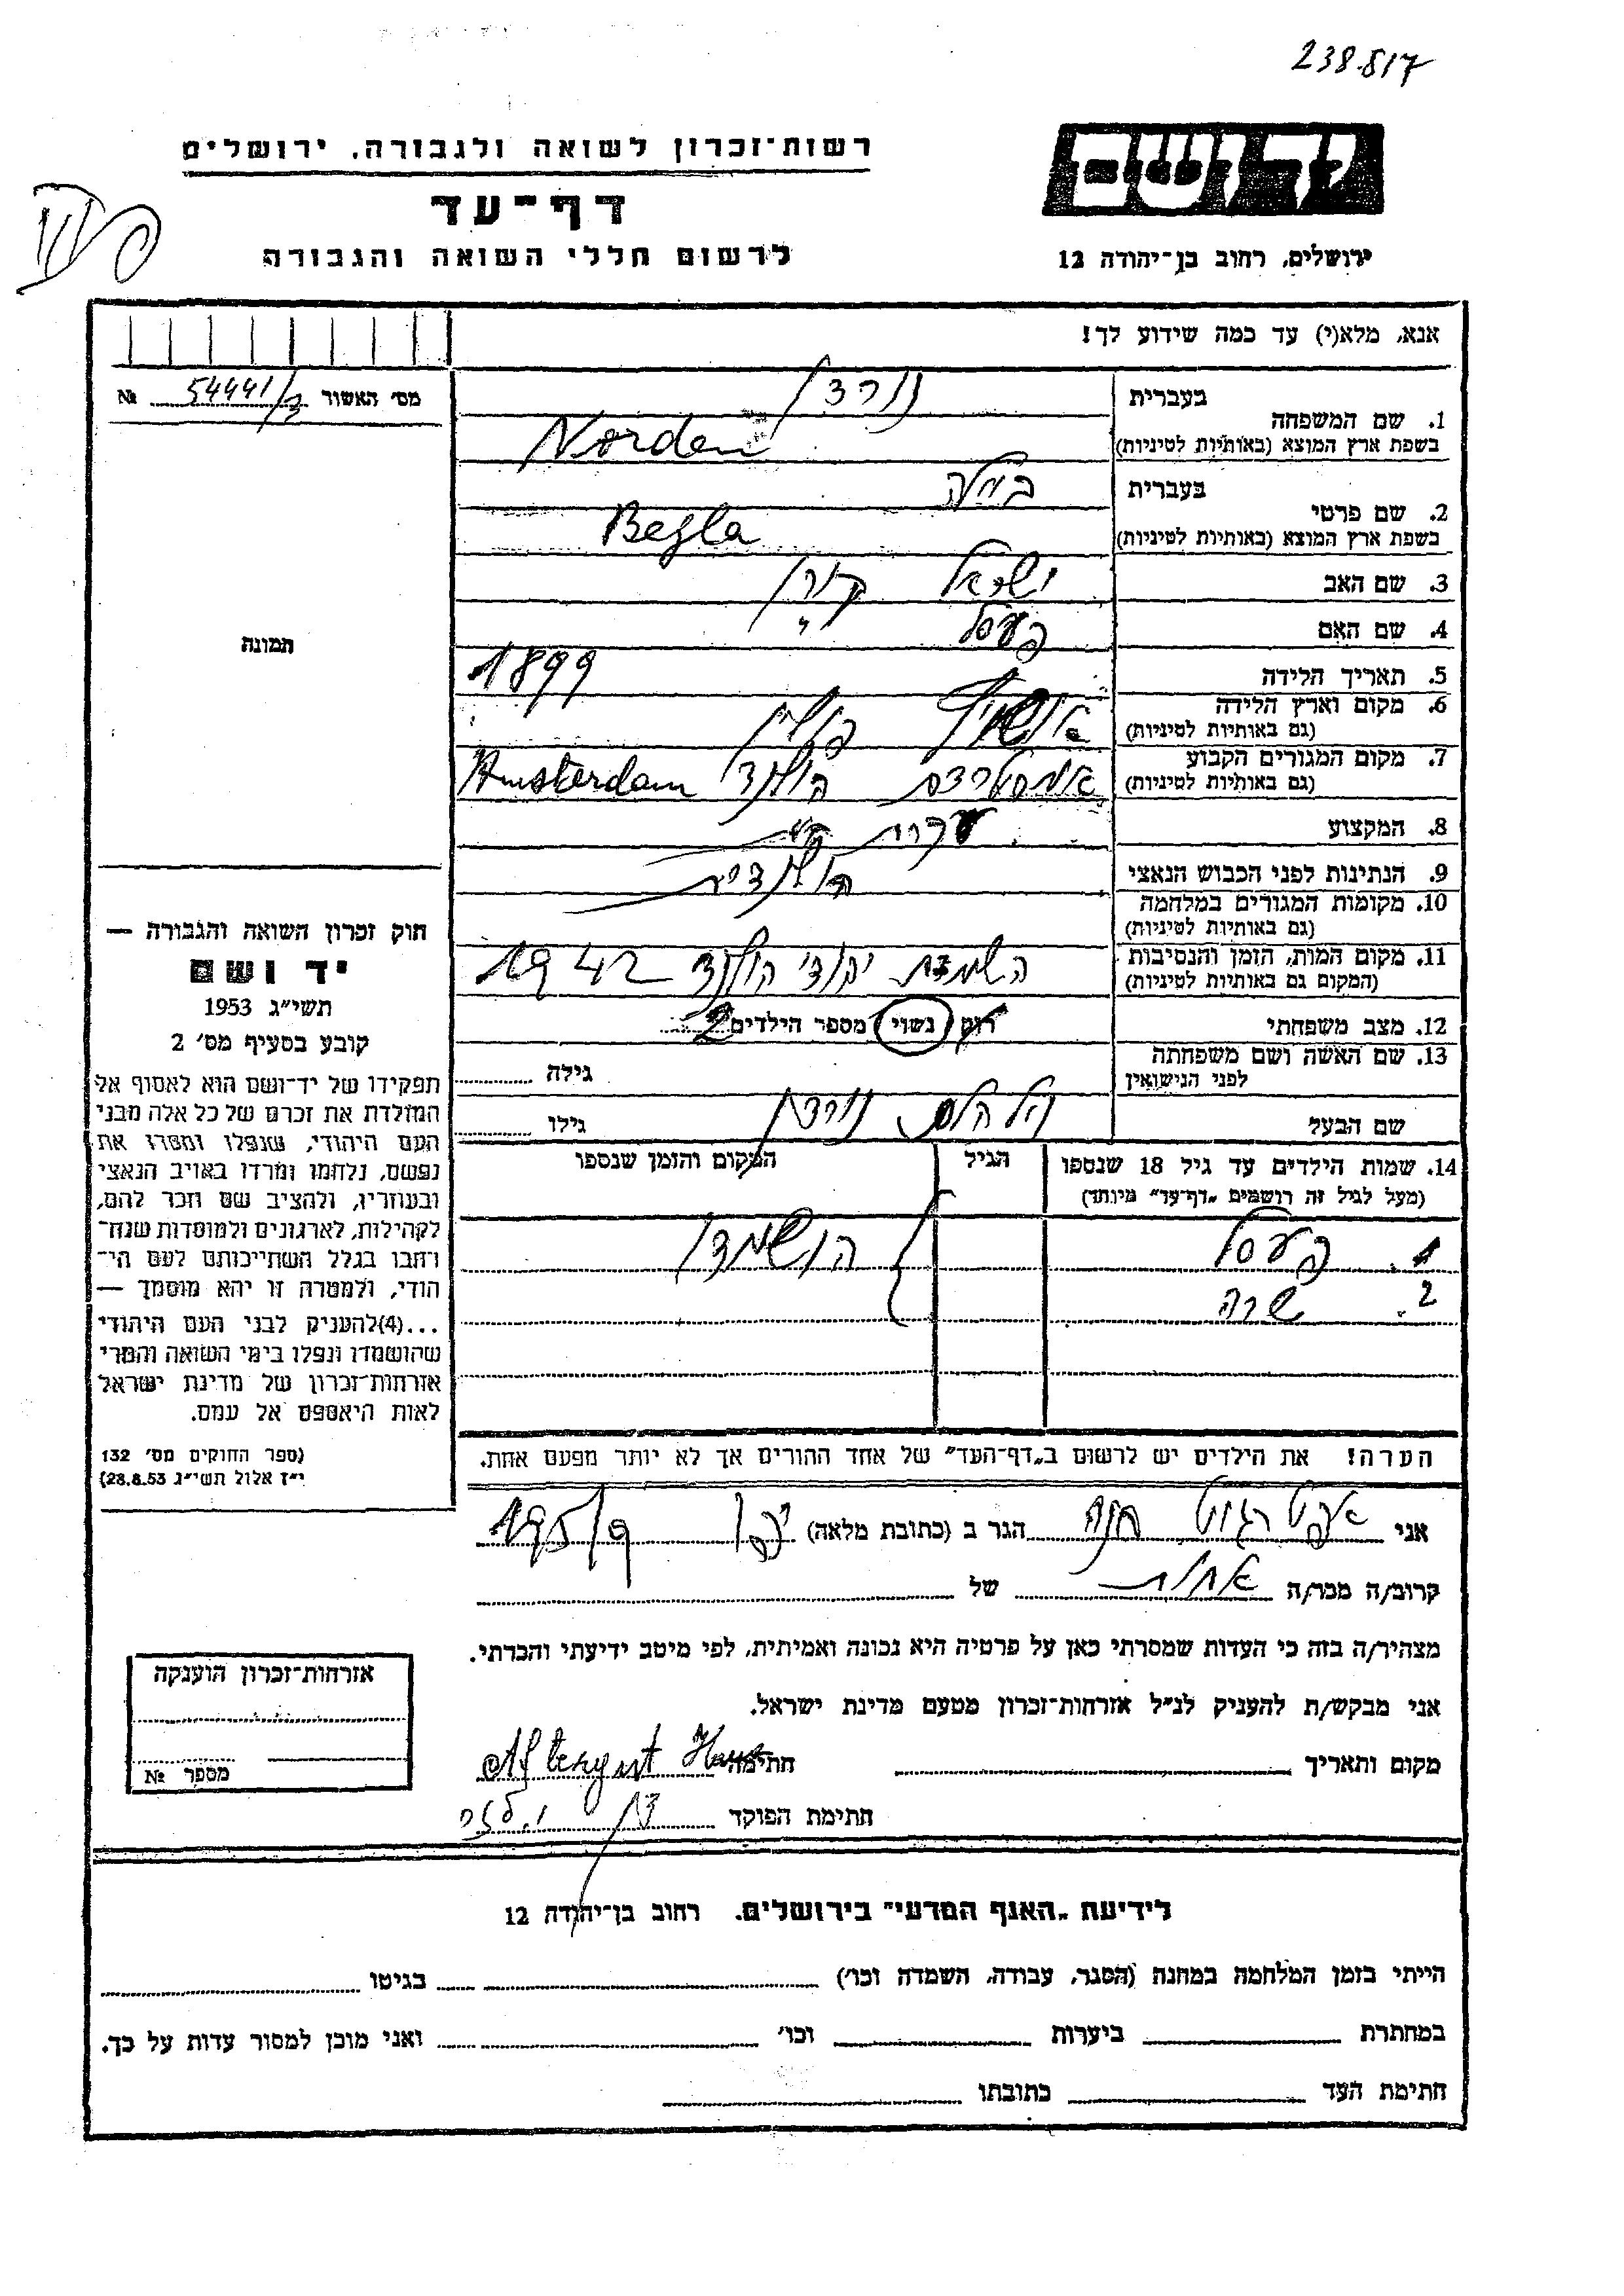 238.817
רשות־זכרון לשואה ולגבורה, ירושלים
דף־עד
לרשום חללי השואה והגבורה
יד ושם
ירושלים, רחוב בן־יהודה 12
אנא, מלא(י) עד כמה שידוע לך!
מס׳ האשור 54441/ №
1. שם המשפחה בעברית נורדן
בשפת ארץ המוצא (באותיות לטיניות) Norden
2. שם פרטי בעברית ביילה
בשפת ארץ המוצא (באותיות לטיניות) Begla
3. שם האב ישראל
4. שם האם
5. תאריך הלידה 1899
6. מקום וארץ הלידה פולין
(גם באותיות לטיניות)
7. מקום המגורים הקבוע אמסטרדם הולנד Amsterdam
(גם באותיות לטיניות)
8. המקצוע עקרת בית
9. הנתינות לפני הכבוש הנאצי הולנדית
10. מקומות המגורים במלחמה
(גם באותיות לטיניות)
11. מקום המות, הזמן והנסיבות השמדת יהודי הולנד 1942
(המקום גם באותיות לטיניות)
12. מצב משפחתי רוק נשוי מספר הילדים 2
13. שם האשה ושם משפחתה גילה
לפני הנישואין
שם הבעל וילהלם נורדן גילו
14. שמות הילדים עד גיל 18 שנספו הגיל המקום והזמן שנספו
(מעל לגיל זה רושמים „דף־עד״ מיוחד)
1. הושמדו
2. שרה
תמונה
חוק זכרון השואה והגבורה —
יד ושם
תשי״ג 1953
קובע בסעיף מס׳ 2
תפקידו של יד־ושם הוא לאסוף אל
המולדת את זכרם של כל אלה מבני
העם היהודי, שנפלו ומסרו את
נפשם, נלחמו ומרדו באויב הנאצי
ובעוזריו, ולהציב שם וזכר להם,
לקהילות, לארגונים ולמוסדות שנח־
רבו בגלל השתייכותם לעם הי־
הודי, ולמטרה זו יהא מוסמך —
...(4) להעניק לבני העם היהודי
שהושמדו ונפלו בימי השואה והמרי
אזרחות־זכרון של מדינת ישראל
לאות היאספם אל עמם.
(ספר החוקים מס׳ 132
י״ז אלול תשי״ג 28.8.53)
הערה! את הילדים יש לרשום ב„דף־העד״ של אחד ההורים אך לא יותר מפעם אחת.
אני חנה הגר ב (כתובת מלאה) 195/9
קרוב/ה מכר/ה אחות של
מצהיר/ה בזה כי העדות שמסרתי כאן על פרטיה היא נכונה ואמיתית, לפי מיטב ידיעתי והכרתי.
אני מבקש/ת להעניק לנ״ל אזרחות־זכרון מטעם מדינת ישראל.
מקום ותאריך חתימה
חתימת הפוקד
אזרחות־זכרון הוענקה
מספר №
לידיעת „האגף המדעי״ בירושלים. רחוב בן־יהודה 12
הייתי בזמן המלחמה במחנה (הסגר, עבודה, השמדה וכו׳) בגיטו
במחתרת ביערות וכו׳ ואני מוכן למסור עדות על כך.
חתימת העד כתובתו